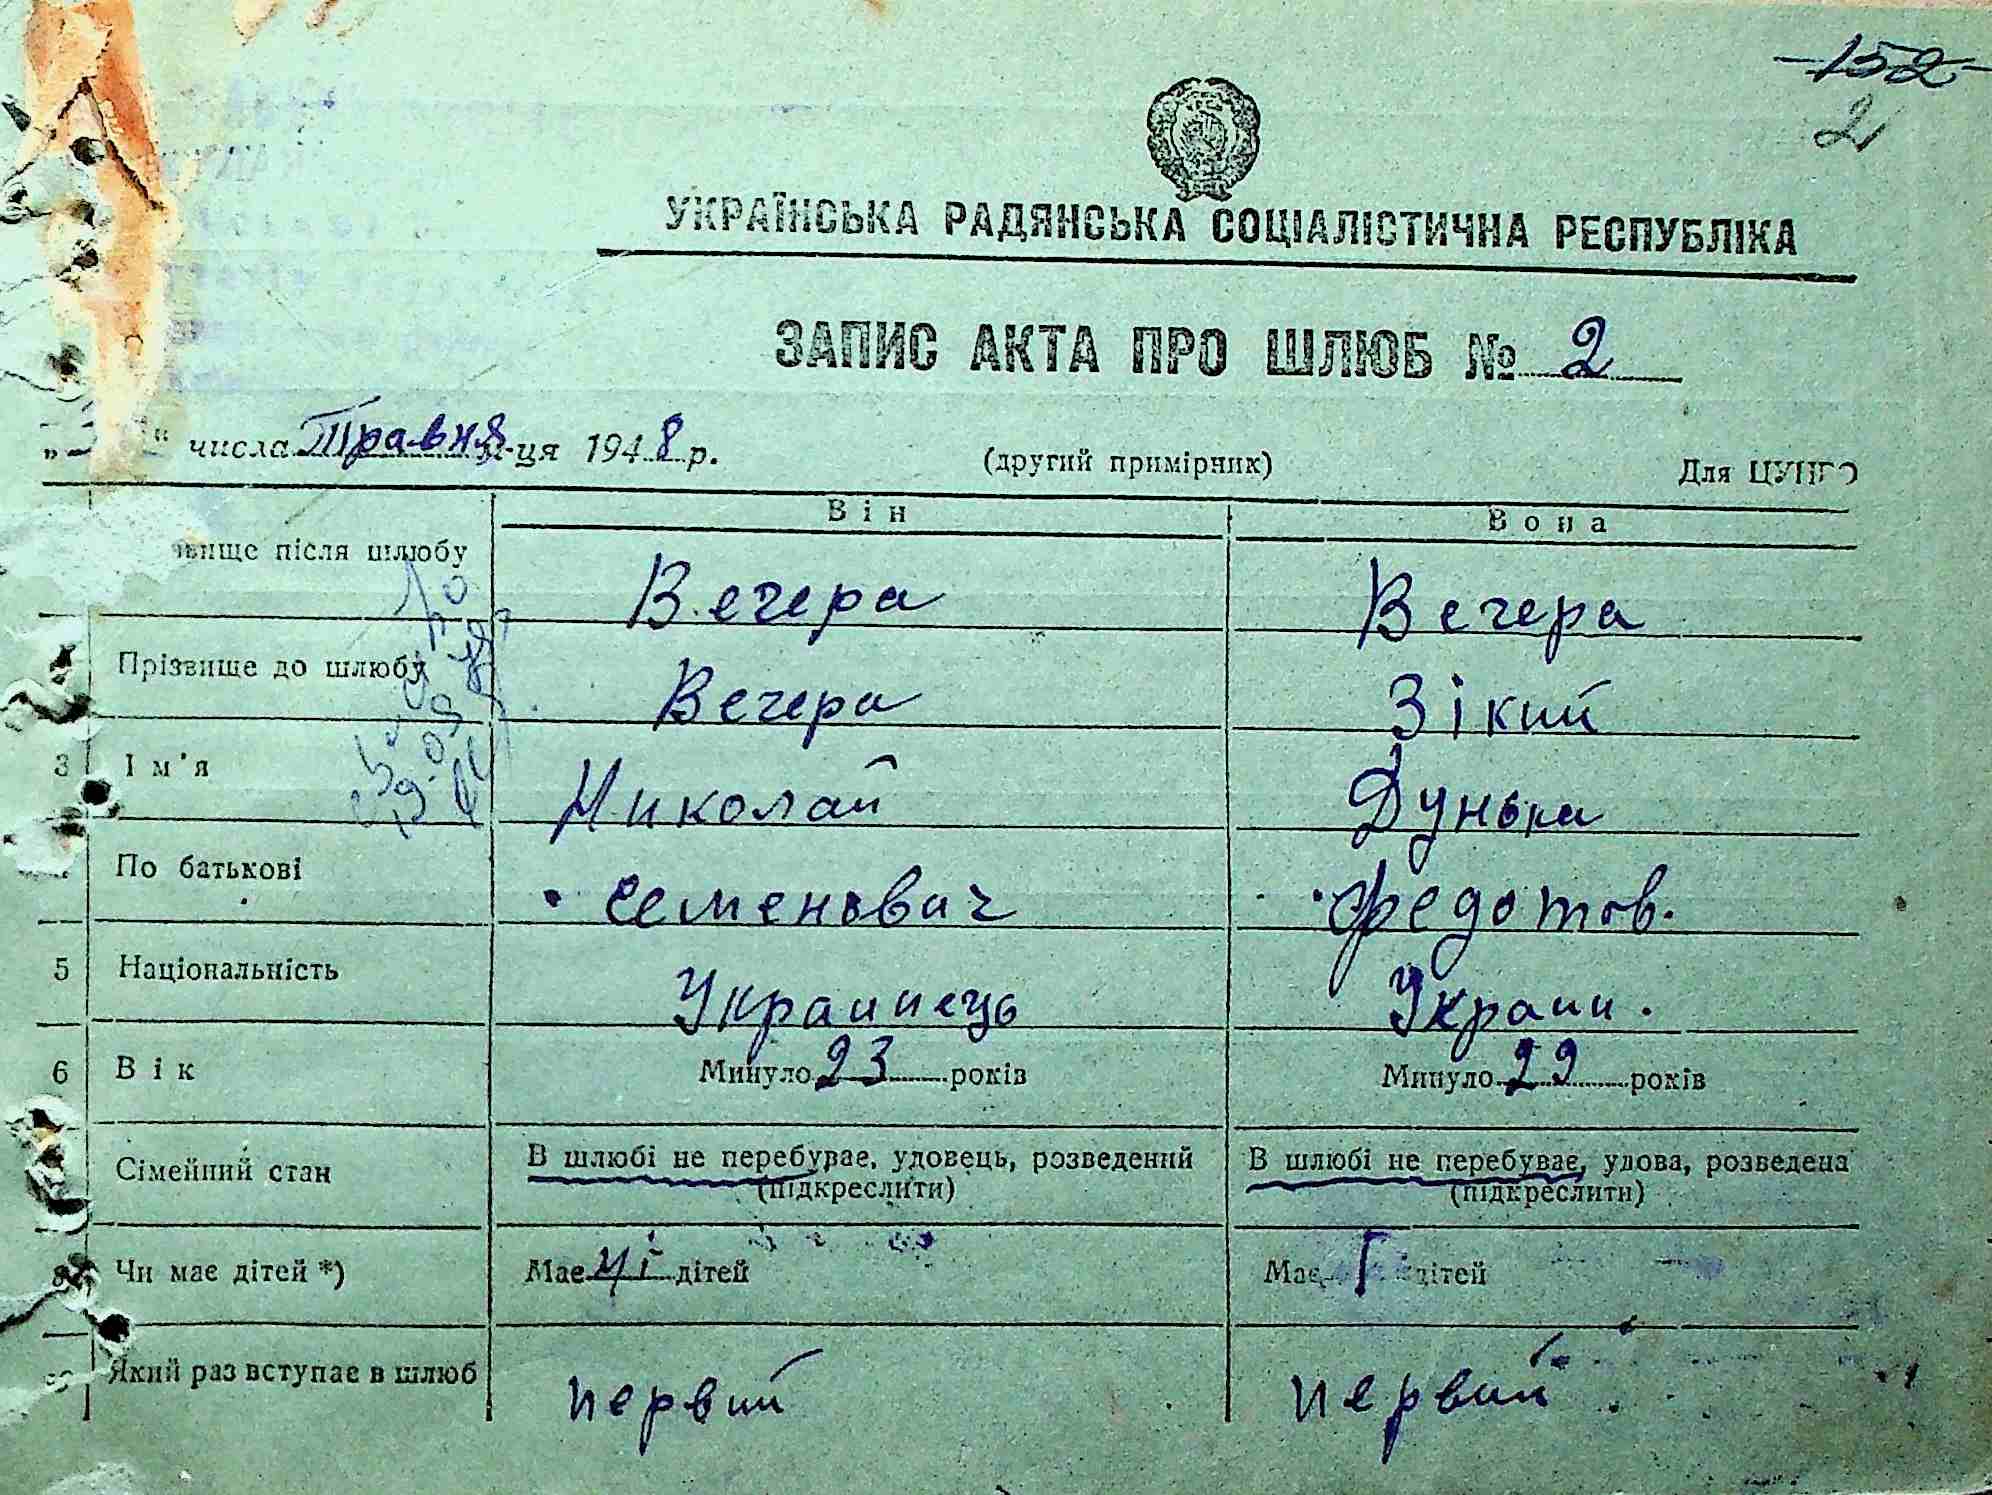 152
2
УКРАЇНСЬКА РАДЯНСЬКА СОЦІАЛІСТИЧНА РЕСПУБЛІКА
ЗАПИС АКТА ПРО ШЛЮБ № 2
" " числа Травня м-ця 1948 р. (другий примірник) Для ЦУНГО
Він Вона
звище після шлюбу Вечера Вечера
Прізвище до шлюбу Вечера Зікий
3 Ім'я Николай Дунька
По батькові Семеновач Федотов.
5 Національність Украинець Украин.
6 Вік Минуло 23 років Минуло 29 років
Сімейний стан В шлюбі не перебуває, удовець, розведений В шлюбі не перебуває, удова, розведена
(підкреслити) (підкреслити)
8 Чи має дітей *) Має ні дітей Має 1 дітей
Який раз вступає в шлюб первий первий